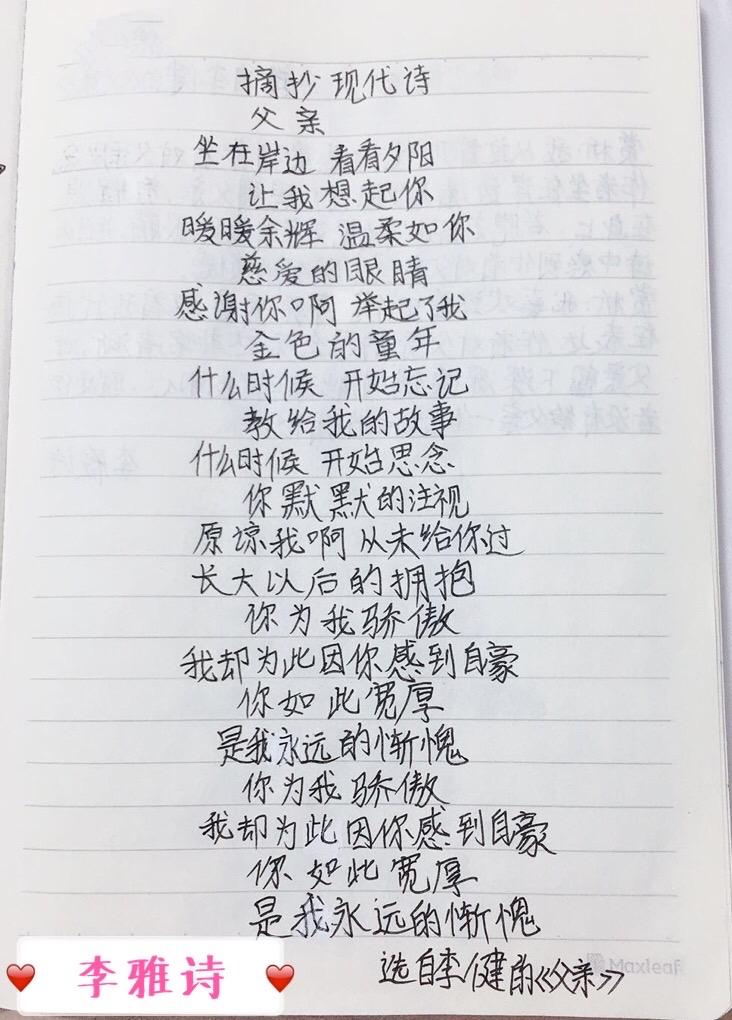 摘抄现代诗
父亲
坐在岸边 看看夕阳
让我想起你
暖暖余辉 温柔如你
慈爱的眼睛
感谢你啊 举起了我
金色的童年
什么时候 开始忘记
教给我的故事
什么时候 开始思念
你默默的注视
原谅我啊 从未给你过
长大以后的拥抱
你为我骄傲
我却为此因你感到自豪
你如此宽厚
是我永远的惭愧
你为我骄傲
我却为此因你感到自豪
你如此宽厚
是我永远的惭愧
选自李健的《父亲》
Maxleaf
李雅诗